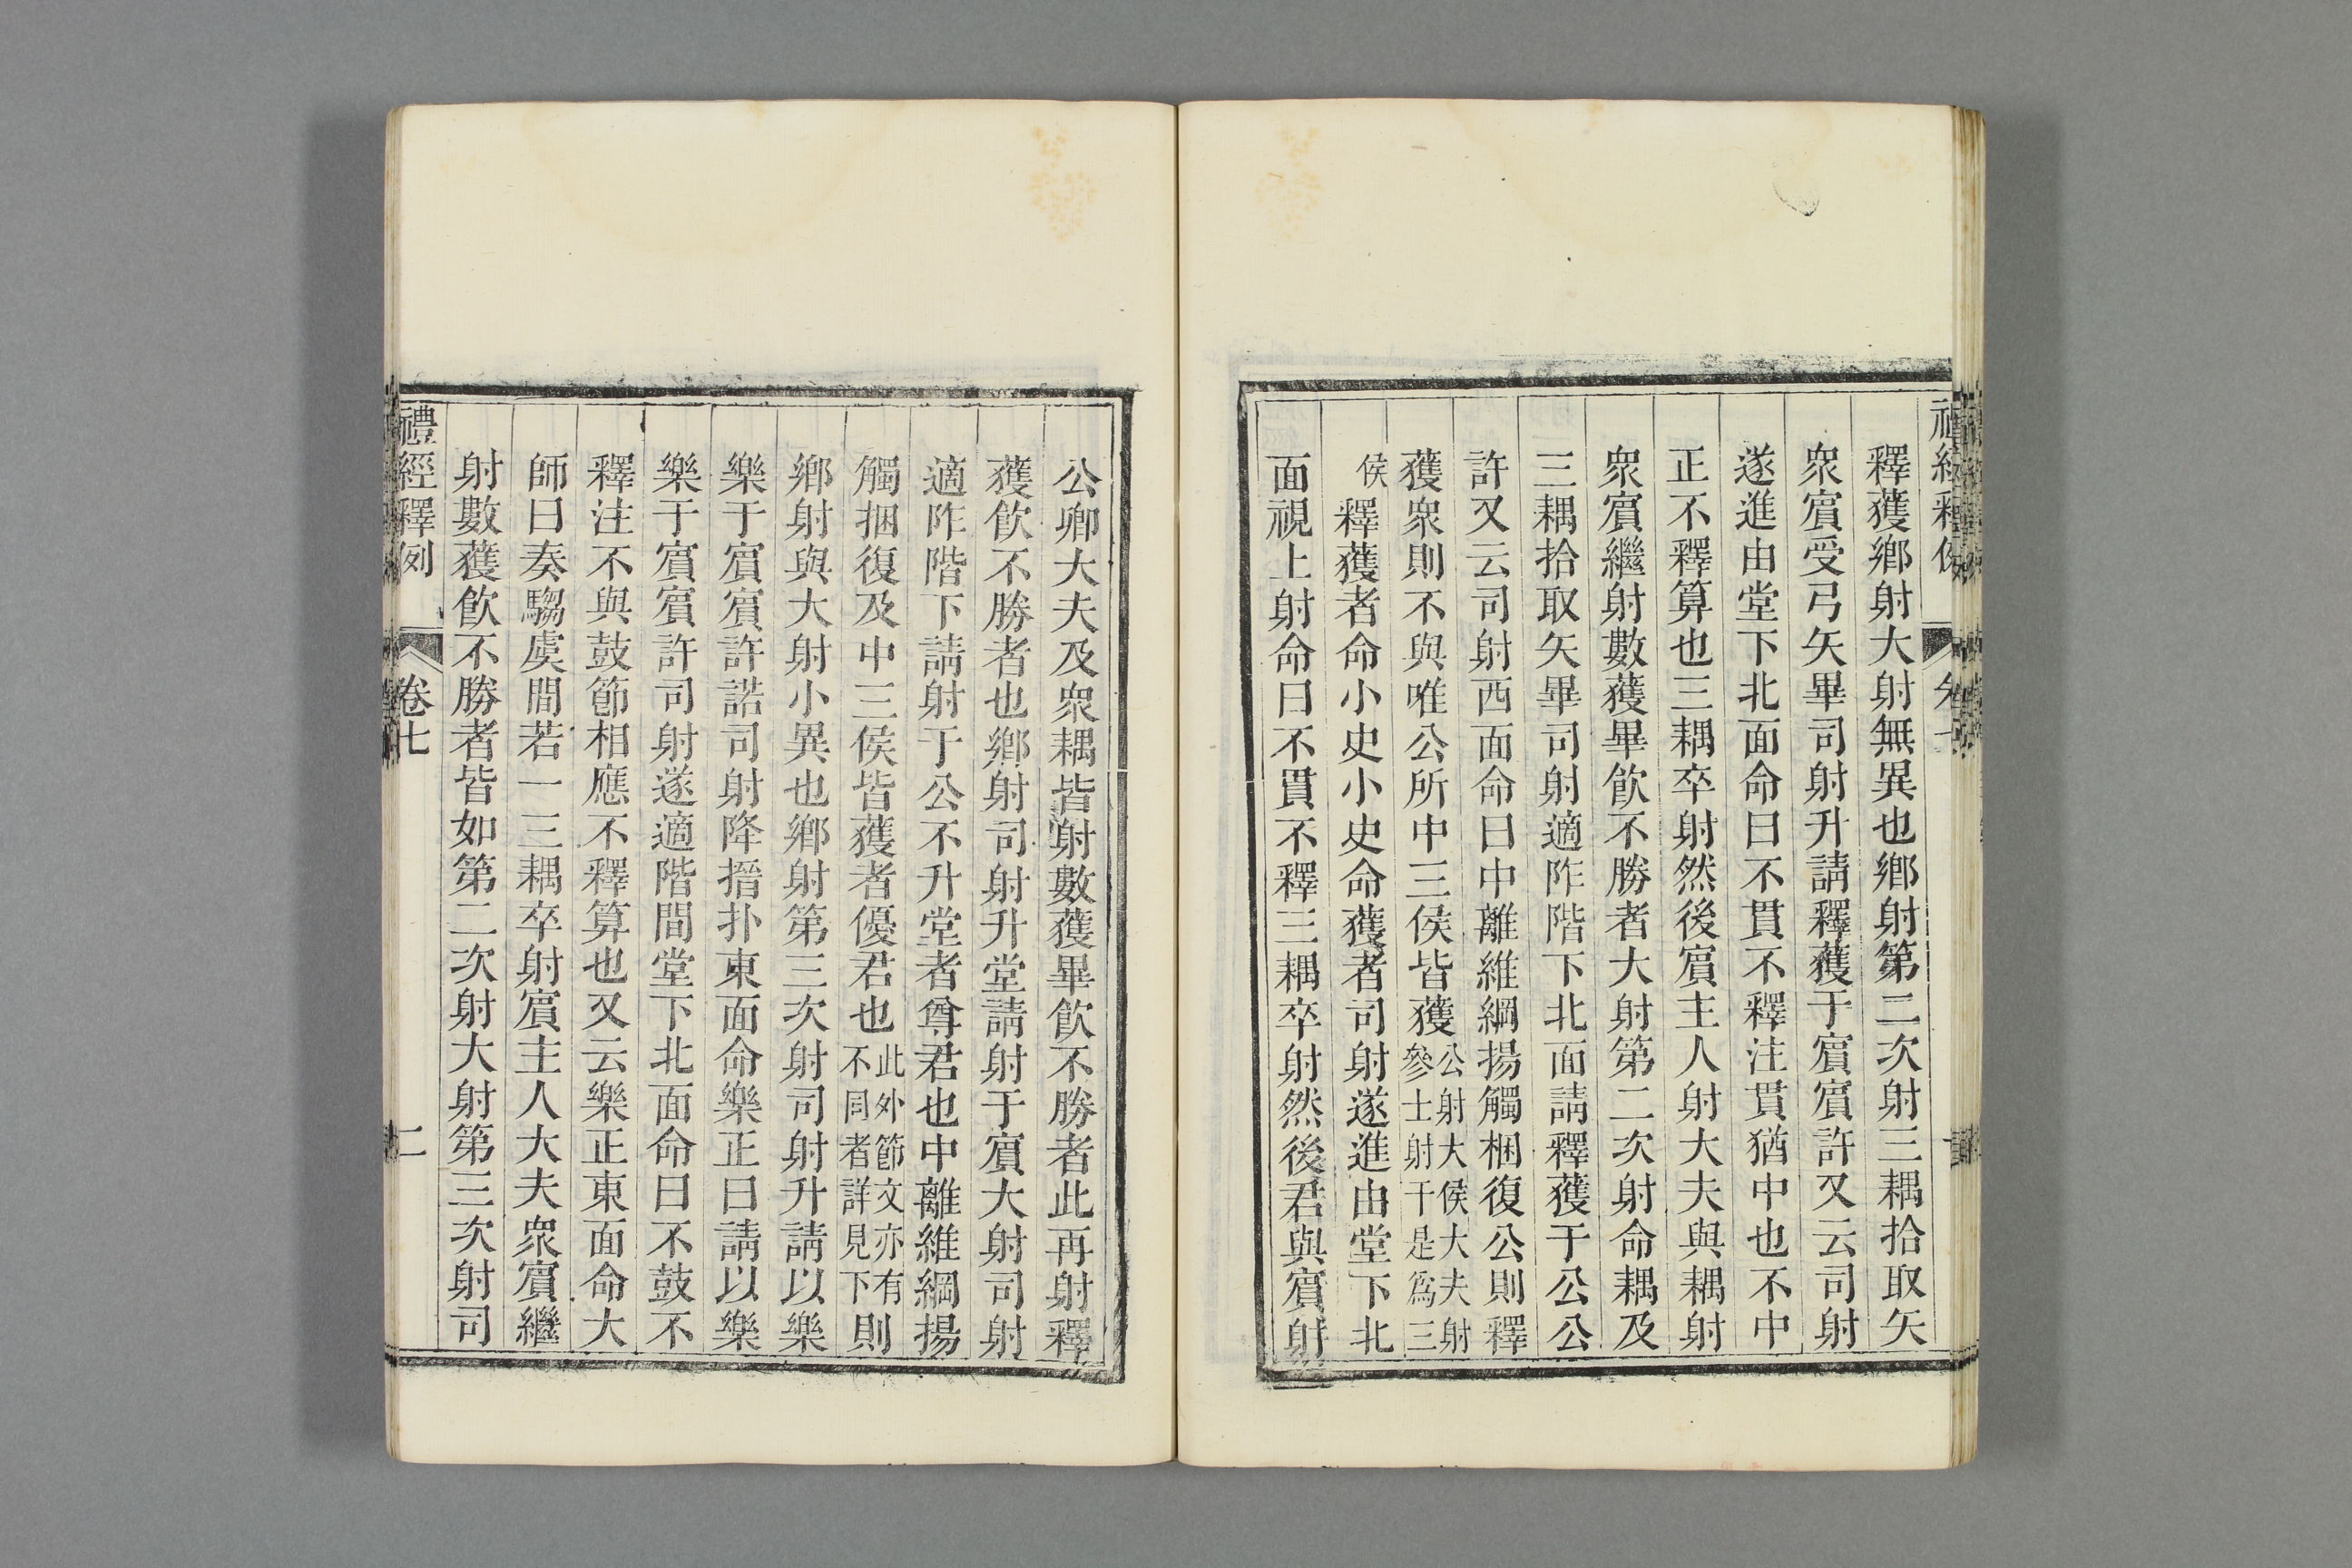 釋獲鄉射大射無異也鄉射第二次射三耦拾取矢
眾賔受弓矢畢司射升請釋獲于賔賔許又云司射
遂進由堂下北面命曰不貫不釋注貫猶中也不中
正不釋算也三耦卒射然後賔主人射大夫與耦射
眾賔繼射數獲畢飲不勝者大射第二次射命耦及
三耦拾取矢畢司射適阼階下北面請釋獲于公公
許又云司射西面命曰中離維綱揚觸梱復公則釋
獲眾則不與唯公所中三侯皆獲公射大侯大夫射參士射干是爲三
侯釋獲者命小史小史命獲者司射遂進由堂下北
面視上射命曰不貫不釋三耦卒射然後君與賔射
公卿大夫及眾耦皆射數獲畢飲不勝者此再射釋
獲飲不勝者也鄉射司射升堂請射于賔大射司射
適阼階下請射于公不升堂者尊君也中離維綱揚
觸捆復及中三侯皆獲者優君也此外節文亦有不同者詳見下則
鄉射與大射小異也鄉射第三次射司射升請以樂
樂于賔賔許諾司射降搢扑東面命樂正曰請以樂
樂于賔賔許司射遂適階間堂下北面命曰不鼓不
釋注不與鼓節相應不釋算也又云樂正東面命大
師曰奏騶虞間若一三耦卒射賔主人大夫眾賔繼
射數獲飲不勝者皆如第二次射大射第三次射司
禮經釋例 卷七 二